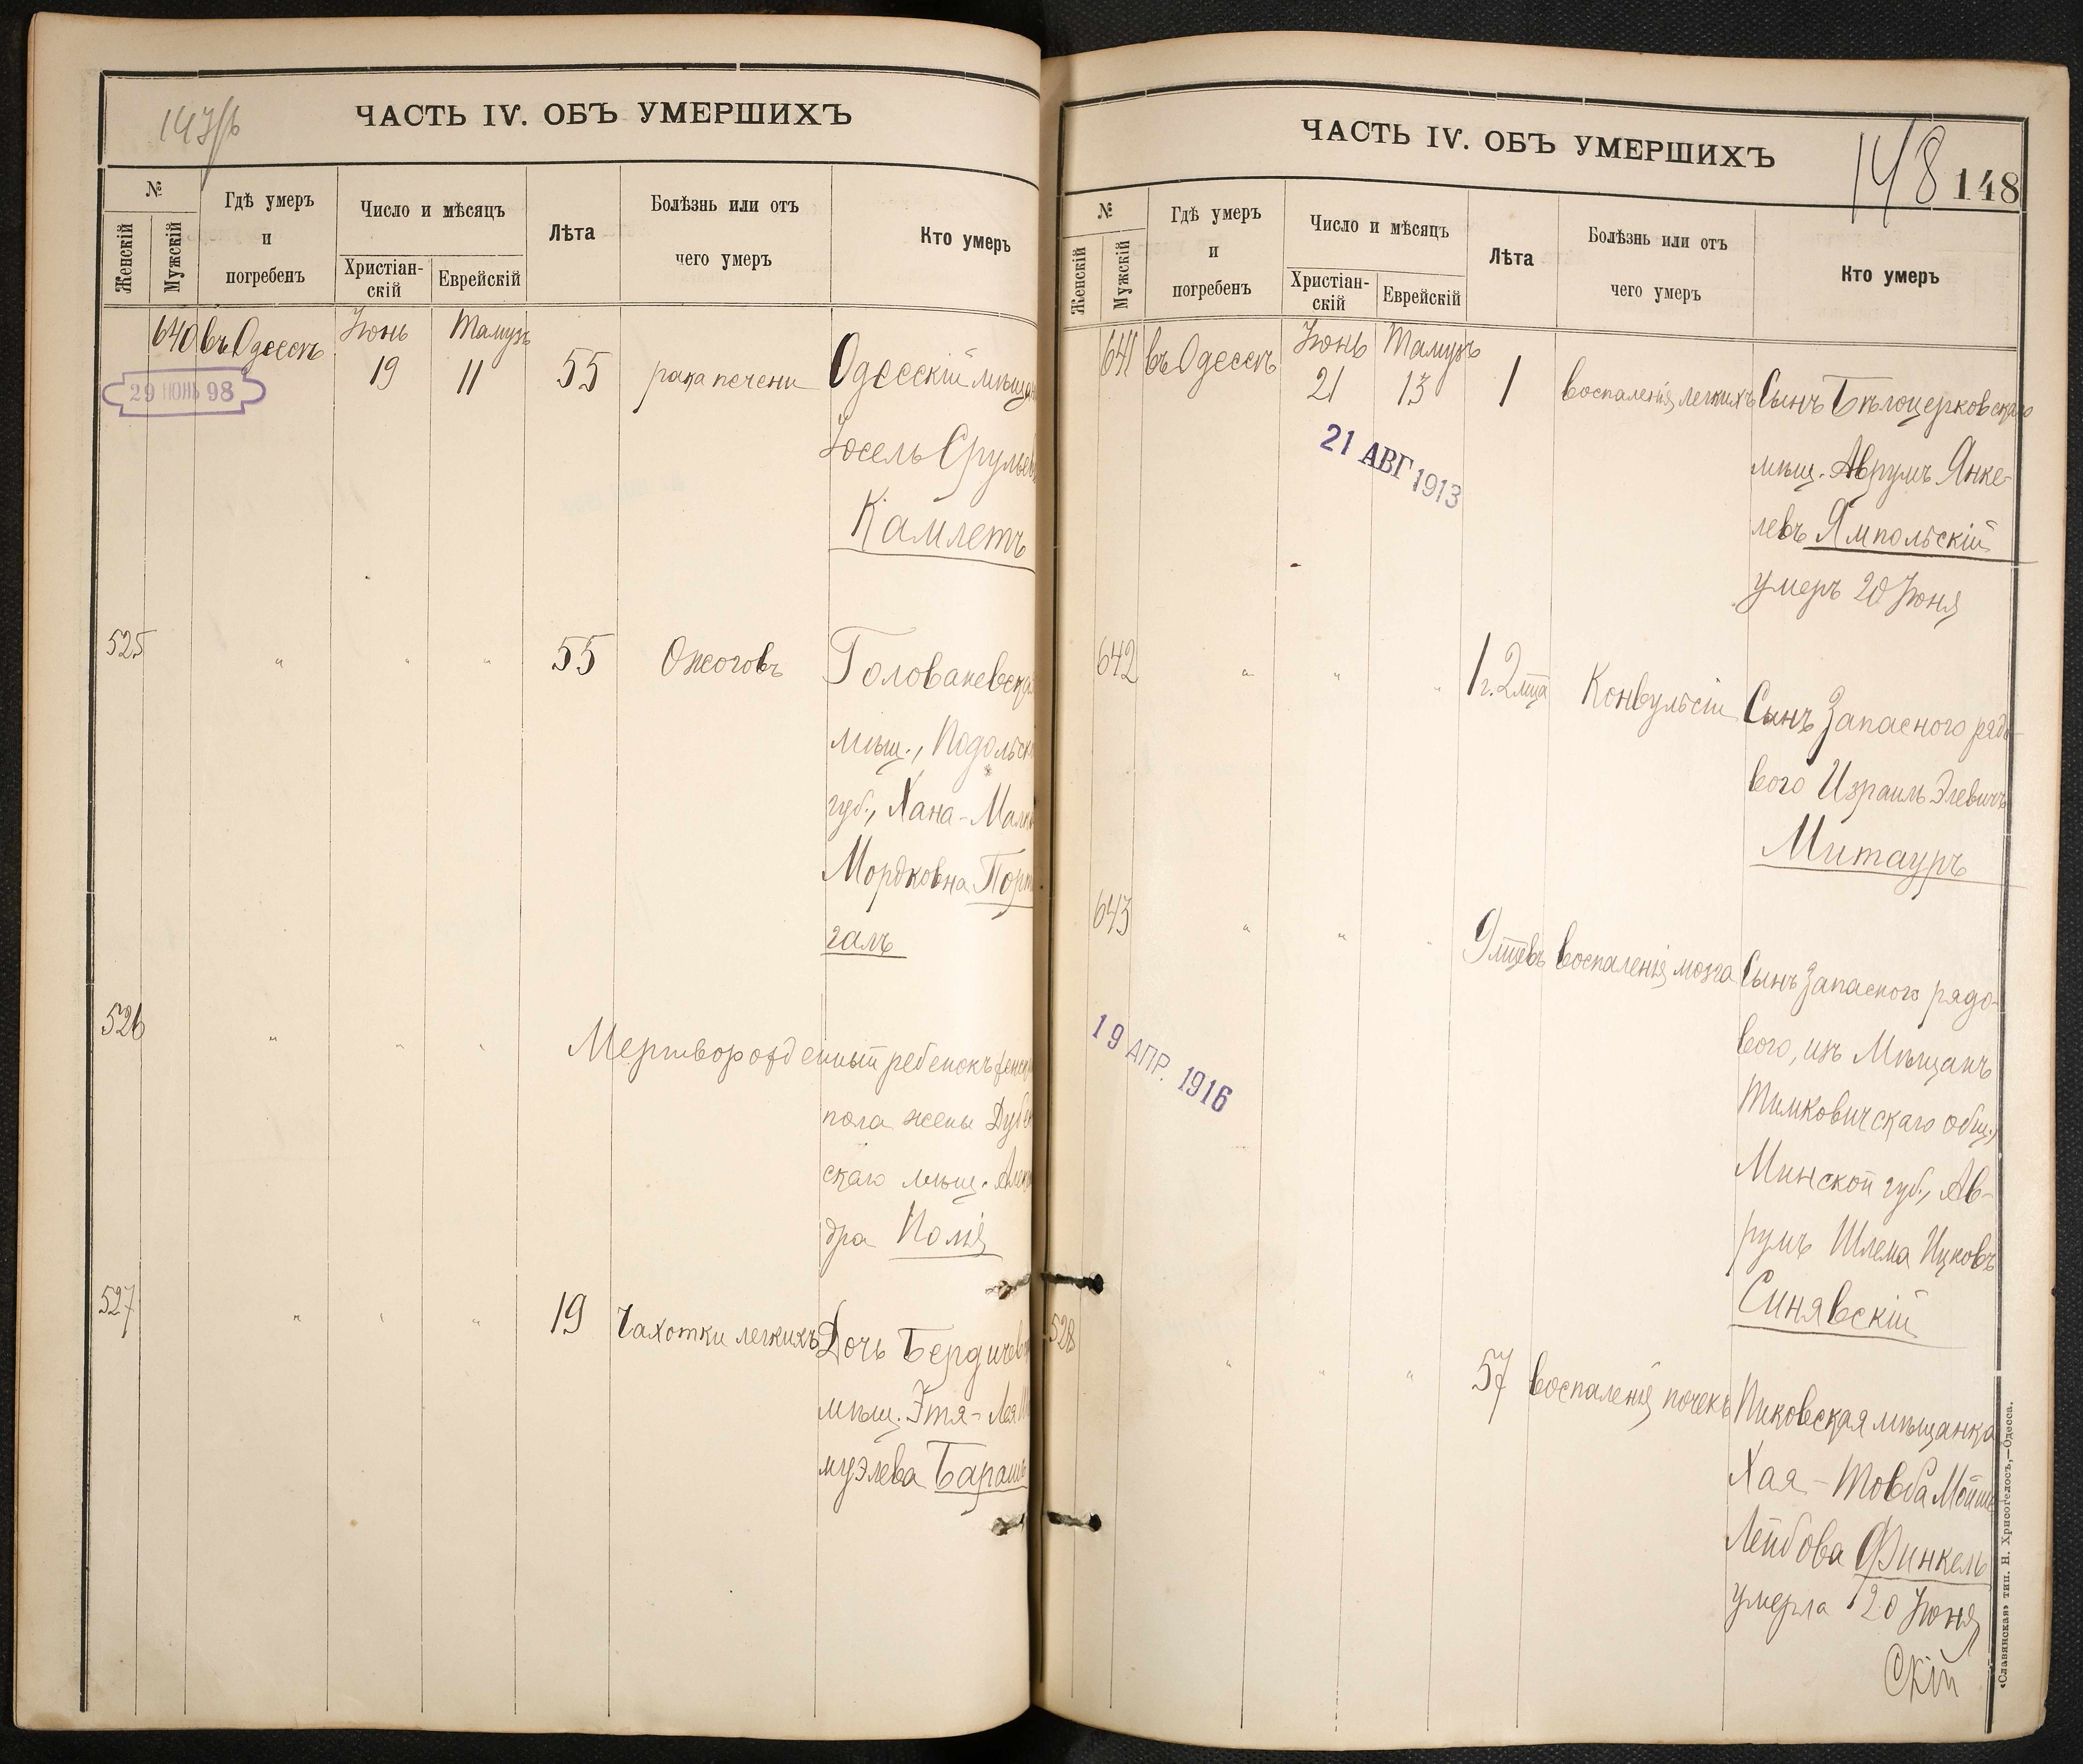 147/б
ЧАСТЬ IV. ОБЪ УМЕРШИХЪ
№
Женскій
Мужскій
Гдѣ умеръ
и
погребенъ
Число и мѣсяцъ
Христіан-
скій
Еврейскій
Лѣта
Болѣзнь или отъ
чего умеръ
Кто умеръ
640 въ Одессѣ Іюнь Тамузъ
19 11 55 рака печени Одесскій
29 ИЮНЬ 98
Іосель
Камлетъ
525 " " " 55 Ожоговъ
мѣщ.,
губ., Хана-
Мордковна
галъ
526 " " " Мертворожденный ребенокъ
пола жены
скаго мѣщ.
дра
527 " " " 19 Чахотки легкихъ Дочь
мѣщ. Этя-Лея
муэлева Барашъ
ЧАСТЬ IV. ОБЪ УМЕРШИХЪ
148
148
№
Женскій
Мужскій
Гдѣ умеръ
и
погребенъ
Число и мѣсяцъ
Христіан-
скій
Еврейскій
Лѣта
Болѣзнь или отъ
чего умеръ
Кто умеръ
641 въ Одессѣ Іюнь Тамузъ
21 13 1 воспаленія легкихъ Сынъ Бѣлоцерковскаго
мѣщ. Аврумъ Янке-
левъ Ямпольскій
умеръ 20 Іюня
21 АВГ 1913
642 " " " 1 г. 2 мца Конвульсіи Сынъ Запасного рядо-
вого Израиль Элевичъ
Митауръ
643 " " " 9 мцевъ воспаленія мозга Сынъ Запасного рядо-
вого, изъ Мѣщанъ
Тимковичскаго общ.,
Минской губ., Ав-
румъ Шлема Ицковъ
Синявскій
19 АПР. 1916
528 " " " 57 воспаленія почекъ Пиковская мѣщанка
Хая-Товба
Лейбова Финкель
умерла 20 Іюня
Скій
«Славянская» тип. Н. Хрисогелосъ,—Одесса.